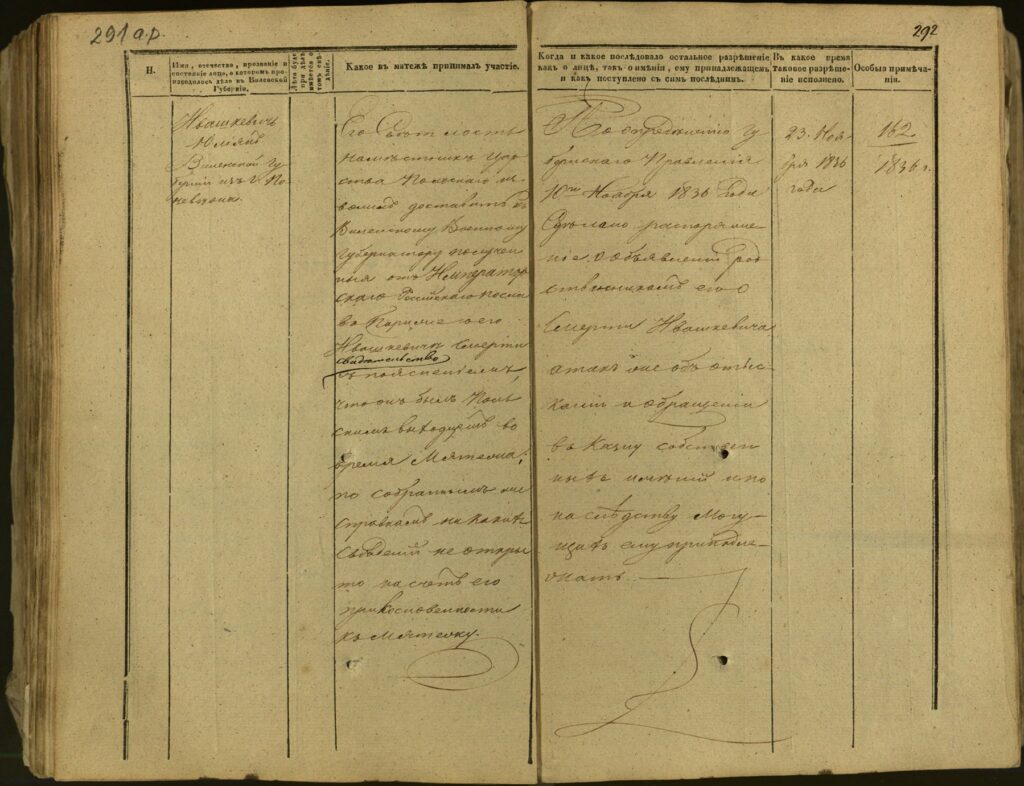 291 а.р.
292
И.
Имя, отечество, прозвание и
состояние лица, о котором про-
изводилось дѣло въ Виленской
Губерніи.
Какое въ мятежѣ принималъ участіе.
Когда и какое послѣдовало остальное разрѣшеніе
какъ о лицѣ, такъ о имѣніи, ему принадлежащемъ
и какъ поступлено съ симъ послѣднимъ.
Въ какое время
таковое разрѣше-
ніе исполнено.
Особыя примѣча-
нія.
Ивашкевичъ
Юліянъ
Виленской Гу-
берніи изъ г. По-
невѣжа.
Его Свѣтлость
Намѣстникъ Цар-
ства Польскаго из-
волилъ доставить къ
Виленскому Военному
Губернатору получен-
ныя отъ Император-
скаго Россійскаго Посла
въ Парижѣ о его
Ивашкевича Смерти
свидѣтельство
съ поясненіемъ,
что онъ былъ Поль-
скимъ выходцемъ во
время Мятежа,
по собраннымъ же
справкамъ никакихъ
Свѣдѣній не откры-
то на счетъ его
прикосновенности
къ Мятежу.
По опредѣленію Гу-
бернскаго Правленія
10го Ноября 1836 Года
Сдѣлано распоряже-
ніе о объявленіи род-
ственникамъ его о
Смерти Ивашкевича
а такъ же объ отыс-
каніи и обращеніи
въ Казну собствен-
ныхъ имѣній и по
наслѣдству Могу-
щихъ ему принадле-
жать.
23. Ноя-
бря 1836
года
162.
1836 г.